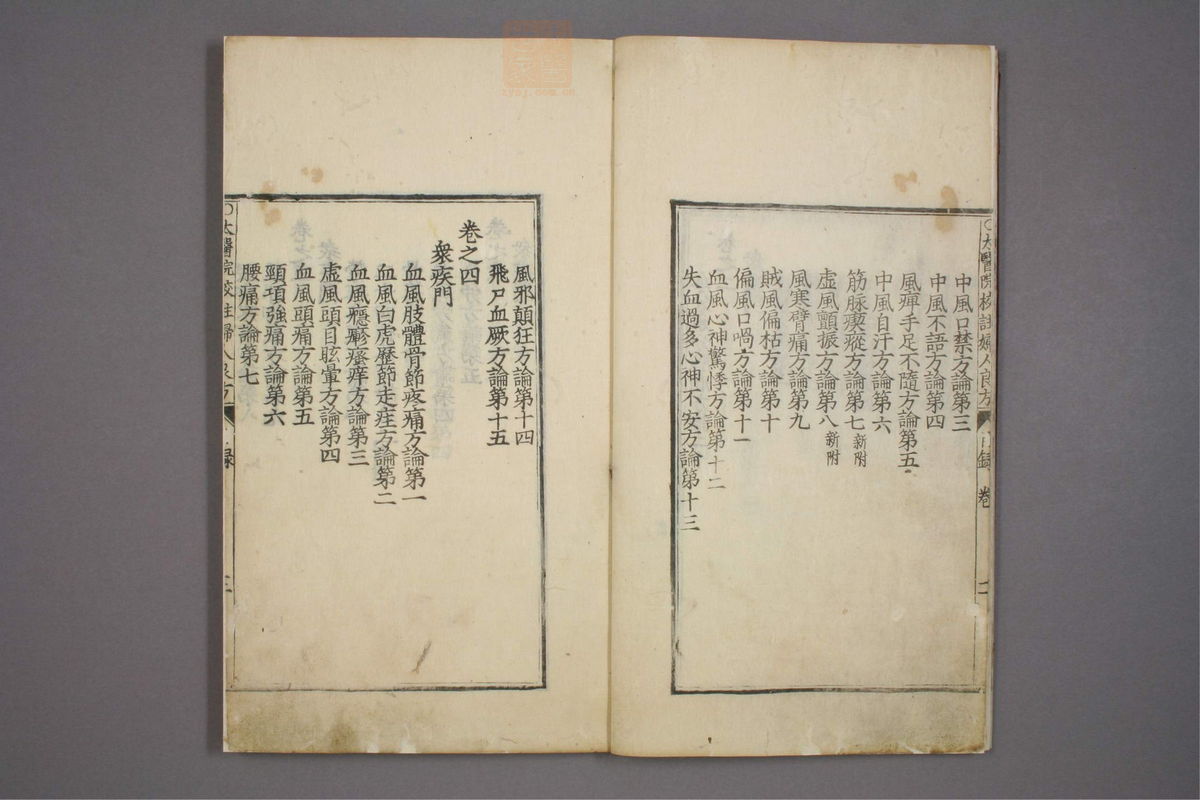 ○太醫院校註婦人良方 目録 卷 二
中風口禁方論第三
中風不語方論第四
風痺手足不隨方論第五
中風自汗方論第六
筋脉瘈瘲方論第七新附
虚風顫振方論第八新附
風寒臂痛方論第九
賊風偏枯方論第十
偏風口喎方論第十一
血風心神驚悸方論第十二
失血過多心神不安方論第十三
風邪顛狂方論第十四
飛尸血厥方論第十五
卷之四
衆疾門
血風肢體骨節疼痛方論第一
血風白虎歷節走疰方論第二
血風癮疹瘙痒方論第三
虚風頭目眩暈方論第四
血風頭痛方論第五
頸項強痛方論第六
腰痛方論第七
○太醫院校註婦人良方 録 三